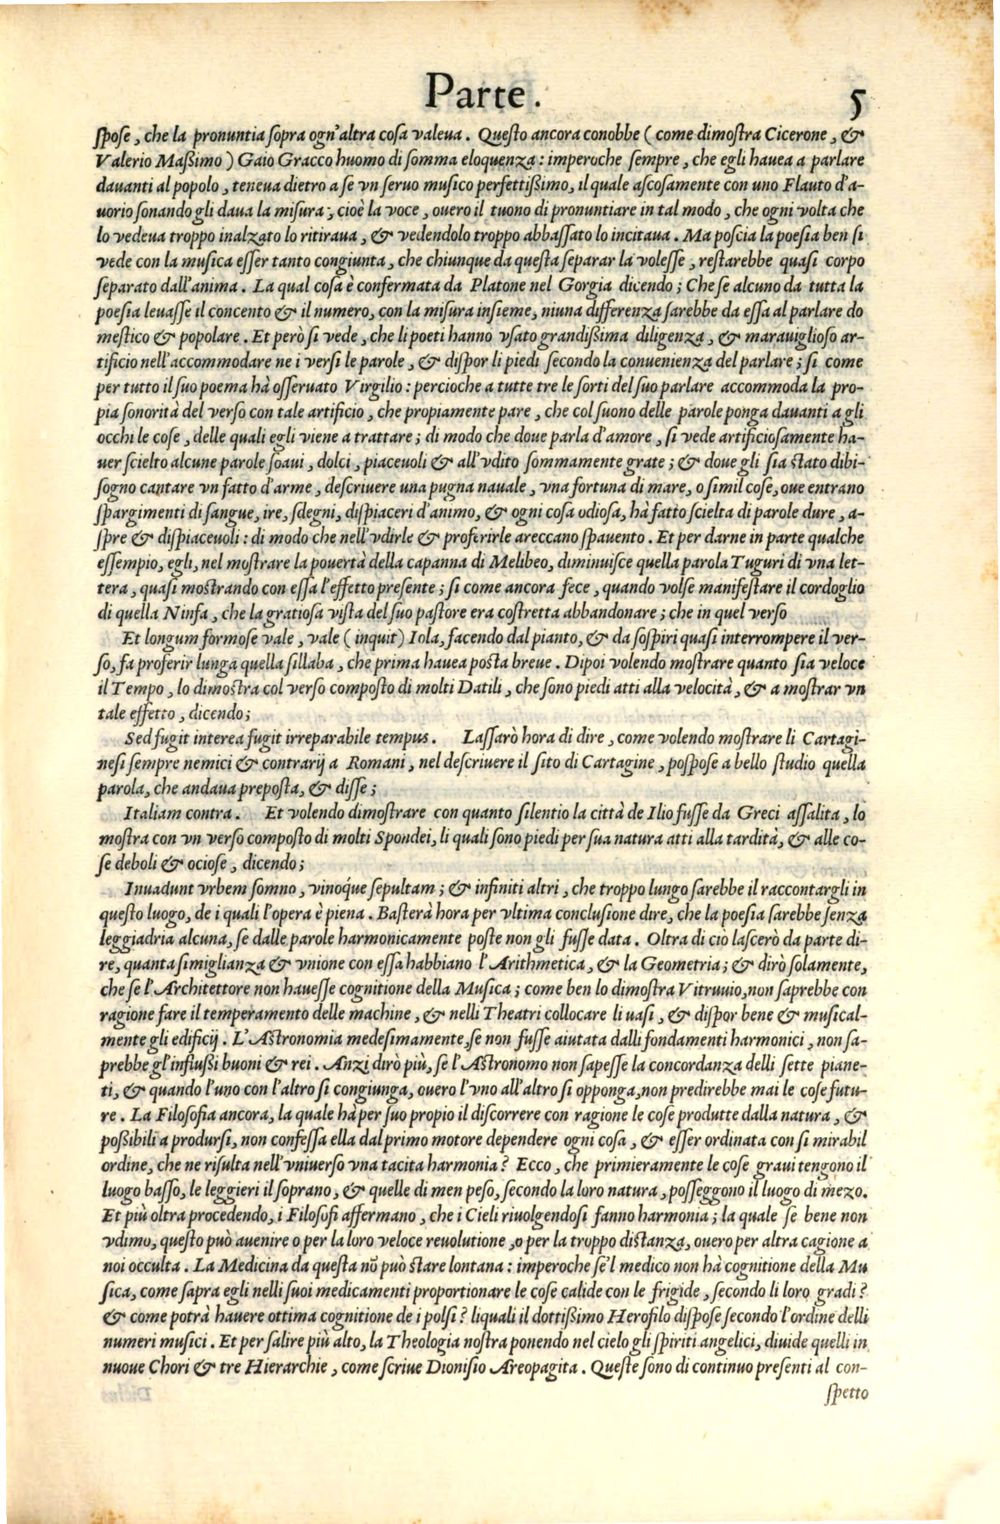 Parte. 5
ſpoſe, che la pronuntia ſopra ogn'altra coſa valeua. Queſto ancora conobbe (come dimoſtra Cicerone, &
Valerio Maßimo) Gaio Gracco huomo di ſomma eloquenza: imperoche ſempre, che egli hauea a parlare
dauanti al popolo, teneua dietro a ſe vn ſeruo muſico perfettißimo, il quale aſcoſamente con uno Flauto d'a-
uorio ſonando gli daua la miſura, cioè la voce, ouero il tuono di pronuntiare in tal modo, che ogni volta che
lo vedeua troppo inalzato lo ritiraua, & vedendolo troppo abbaſſato lo incitaua. Ma poſcia la poeſia ben ſi
vede con la muſica eſſer tanto congiunta, che chiunque da queſta ſeparar la voleſſe, reſtarebbe quaſi corpo
ſeparato dall'anima. La qual coſa è confermata da Platone nel Gorgia dicendo; Che ſe alcuno da tutta la
poeſia leuaſſe il concento & il numero, con la miſura inſieme, niuna differenza ſarebbe da eſſa al parlare do
meſtico & popolare. Et però ſi vede, che li poeti hanno vſato grandißima diligenza, & marauiglioſo ar-
tificio nell'accommodare ne i verſi le parole, & diſpor li piedi ſecondo la conuenienza del parlare; ſi come
per tutto il ſuo poema hà oſſeruato Virgilio: percioche a tutte tre le ſorti del ſuo parlare accommoda la pro-
pia ſonorità del verſo con tale artificio, che propiamente pare, che col ſuono delle parole ponga dauanti a gli
occhi le coſe, delle quali egli viene a trattare; di modo che doue parla d'amore, ſi vede artificioſamente ha-
uer ſcielto alcune parole ſoaui, dolci, piaceuoli & all'vdito ſommamente grate; & doue gli ſia ſtato dibi-
ſogno cantare vn fatto d'arme, deſcriuere una pugna nauale, vna fortuna di mare, o ſimil coſe, oue entrano
ſpargimenti di ſangue, ire, ſdegni, diſpiaceri d'animo, & ogni coſa odioſa, hà fatto ſcielta di parole dure, a-
ſpre & diſpiaceuoli: di modo che nell'vdirle & proferirle areccano ſpauento. Et per darne in parte qualche
eſſempio, egli, nel moſtrare la pouertà della capanna di Melibeo, diminuiſce quella parola Tuguri di vna let-
tera, quaſi moſtrando con eſſa l'effetto preſente; ſi come ancora fece, quando volſe manifeſtare il cordoglio
di quella Ninfa, che la gratioſa viſta del ſuo paſtore era coſtretta abbandonare; che in quel verſo
Et longum formoſe vale, vale (inquit) Iola, facendo dal pianto, & da ſoſpiri quaſi interrompere il ver-
ſo, fa proferir lunga quella ſillaba, che prima hauea poſta breue. Dipoi volendo moſtrare quanto ſia veloce
il Tempo, lo dimoſtra col verſo compoſto di molti Datili, che ſono piedi atti alla velocità, & a moſtrar vn
tale effetto, dicendo;
Sed fugit interea fugit irreparabile tempus. Laſſarò hora di dire, come volendo moſtrare li Cartagi-
neſi ſempre nemici & contrarij a Romani, nel deſcriuere il ſito di Cartagine, poſpoſe a bello ſtudio quella
parola, che andaua prepoſta, & diſſe;
Italiam contra. Et volendo dimoſtrare con quanto ſilentio la città de Ilio fuſſe da Greci aſſalita, lo
moſtra con vn verſo compoſto di molti Spondei, li quali ſono piedi per ſua natura atti alla tardità, & alle co-
ſe deboli & ocioſe, dicendo;
Inuadunt vrbem ſomno, vinoq́ue ſepultam; & infiniti altri, che troppo lungo ſarebbe il raccontargli in
queſto luogo, de i quali l'opera è piena. Baſterà hora per vltima concluſione dire, che la poeſia ſarebbe ſenza
leggiadria alcuna, ſe dalle parole harmonicamente poſte non gli fuſſe data. Oltra di ciò laſcerò da parte di-
re, quanta ſimiglianza & vnione con eſſa habbiano l'Arithmetica, & la Geometria; & dirò ſolamente,
che ſe l'Architettore non haueſſe cognitione della Muſica; come ben lo dimoſtra Vitruuio, non ſaprebbe con
ragione fare il temperamento delle machine, & nelli Theatri collocare li uaſi, & diſpor bene & muſical-
mente gli edificij. L'Aſtronomia medeſimamente, ſe non fuſſe aiutata dalli fondamenti harmonici, non ſa-
prebbe gl'influßi buoni & rei. Anzi dirò più, ſe l'Aſtronomo non ſapeſſe la concordanza delli ſette piane-
ti, & quando l'uno con l'altro ſi congiunga, ouero l'vno all'altro ſi opponga, non predirebbe mai le coſe futu-
re. La Filoſofia ancora, la quale hà per ſuo propio il diſcorrere con ragione le coſe produtte dalla natura, &
poßibili a produrſi, non confeſſa ella dal primo motore dependere ogni coſa, & eſſer ordinata con ſi mirabil
ordine, che ne riſulta nell'vniuerſo vna tacita harmonia? Ecco, che primieramente le coſe graui tengono il
luogo baſſo, le leggieri il ſoprano, & quelle di men peſo, ſecondo la loro natura, poſſeggono il luogo di mezo.
Et più oltra procedendo, i Filoſofi affermano, che i Cieli riuolgendoſi fanno harmonia; la quale ſe bene non
vdimo, queſto può auenire o per la loro veloce reuolutione, o per la troppo diſtanza, ouero per altra cagione a
noi occulta. La Medicina da queſta nō può ſtare lontana: imperoche ſe'l medico non hà cognitione della Mu
ſica, come ſapra egli nelli ſuoi medicamenti proportionare le coſe calide con le frigide, ſecondo li loro gradi?
& come potrà hauere ottima cognitione de i polſi? liquali il dottißimo Herofilo diſpoſe ſecondo l'ordine delli
numeri muſici. Et per ſalire più alto, la Theologia noſtra ponendo nel cielo gli ſpiriti angelici, diuide quelli in
nuoue Chori & tre Hierarchie, come ſcriue Dioniſio Areopagita. Queſte ſono di continuo preſenti al con-
ſpetto